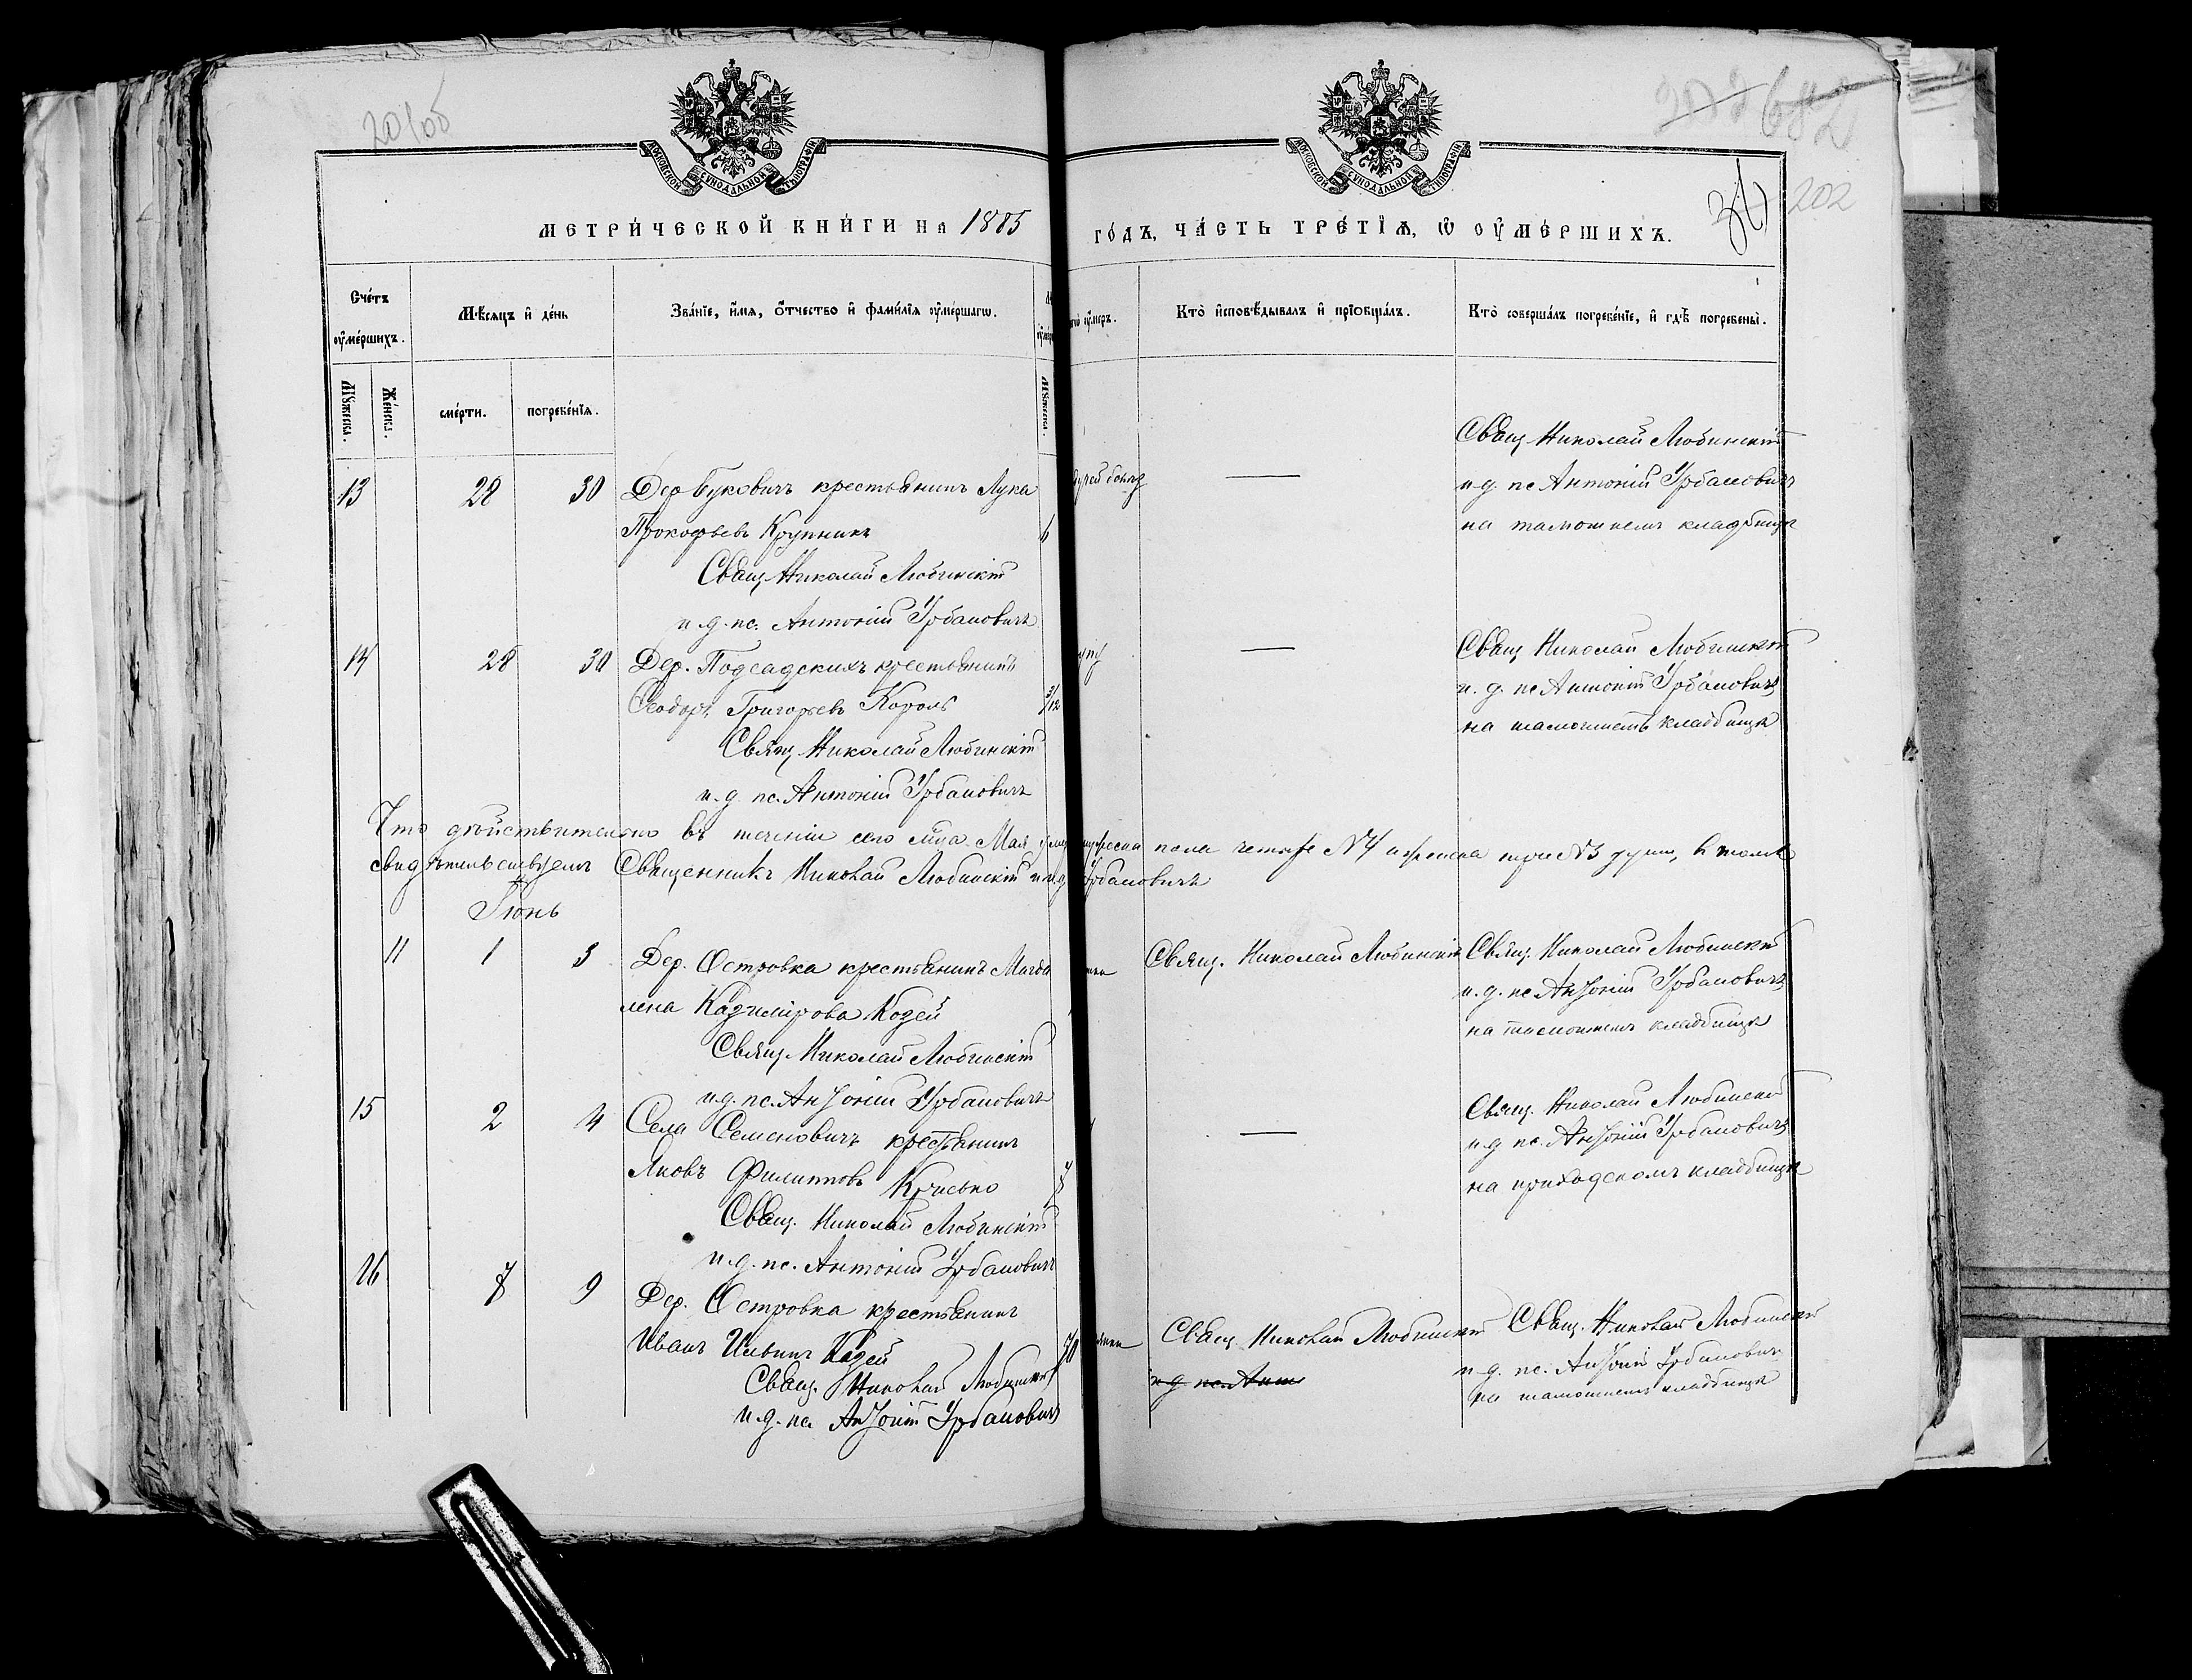 20 об
682
202
МОСКОВСКОЙ СѴНОДАЛЬНОЙ ТѴПОГРАФІИ
МОСКОВСКОЙ СѴНОДАЛЬНОЙ ТѴПОГРАФІИ
МЕТРИ́ЧЕСКОЙ КНИ́ГИ НА 1885 ГО́ДЪ, ЧА́СТЬ ТРЕ́ТІѦ, Ѿ ОУ҆МЕ́РШИХЪ.
Сче́тъ оу҆ме́ршихъ.
Мѣ́сяцъ и҆ де́нь
Зва́нїе, и҆́мѧ, ѻ҆́тчество и҆ фами́лїѧ оу҆ме́ршагѡ.
оу҆́меръ.
Кто̀ и҆сповѣ́дывалъ и҆ прїѡбща́лъ.
Кто̀ соверша́лъ погребе́нїе, и҆ гдѣ̀ погребены̀.
Мꙋ́жеска.
Же́нска.
сме́рти.
погребе́нїѧ.
Мꙋ́жеска.
13 28 30 Дер Буковичъ крестьянинъ Лука
Прокофьевъ Крупникъ
Свящ Николай Любинскій
и. д. пс. Антоній Урбановичъ
—
Свящ Николай Любинскій
и. д. пс Антоній Урбановичъ
на тамошнемъ кладбищѣ
14 28 30 Дер. Подсадскихъ крестьянинъ
Ѳеодоръ Григорьевъ Король 3/12
Свящ Николай Любинскій
и. д. пс. Антоній Урбановичъ
—
Свящ Николай Любинскій
и. д. пс Антоній Урбановичъ
на тамошнемъ кладбищѣ
Что дѣйствительно въ теченіи сего м-ца Мая пола четыре №4 и женска три №3 душъ, въ томъ
свидѣтельствуемъ Священникъ Николай Любинскій и и. д. Урбановичъ
Іюнь
11 1 3 Дер. Островка крестьянинъ Магда
лена Казимірова Козей
Свящ. Николай Любинскій
и. д. пс. Антоній Урбановичъ
Свящ. Николай Любинскій
Свящ. Николай Любинскій
и. д. пс Антоній Урбановичъ
на тамошнемъ кладбищѣ
15 2 4 Села Семеновичъ крестьянинъ
Яковъ Филипповъ Крисько
Свящ. Николай Любинскій
и. д. пс. Антоній Урбановичъ
—
Свящ. Николай Любинскій
и. д. пс. Антоній Урбановичъ
на приходскомъ кладбищѣ
16 7 9 Дер. Островка крестьянинъ
Иванъ Ильинъ Козей 70
Свящ. Николай Любинскій
и. д. пс Антоній Урбановичъ
Свящ. Николай Любинскій
и. д. пс. Анто
Свящ. Николай Любинскій
и. д. пс. Антоній Урбановичъ
на тамошнемъ кладбищѣ